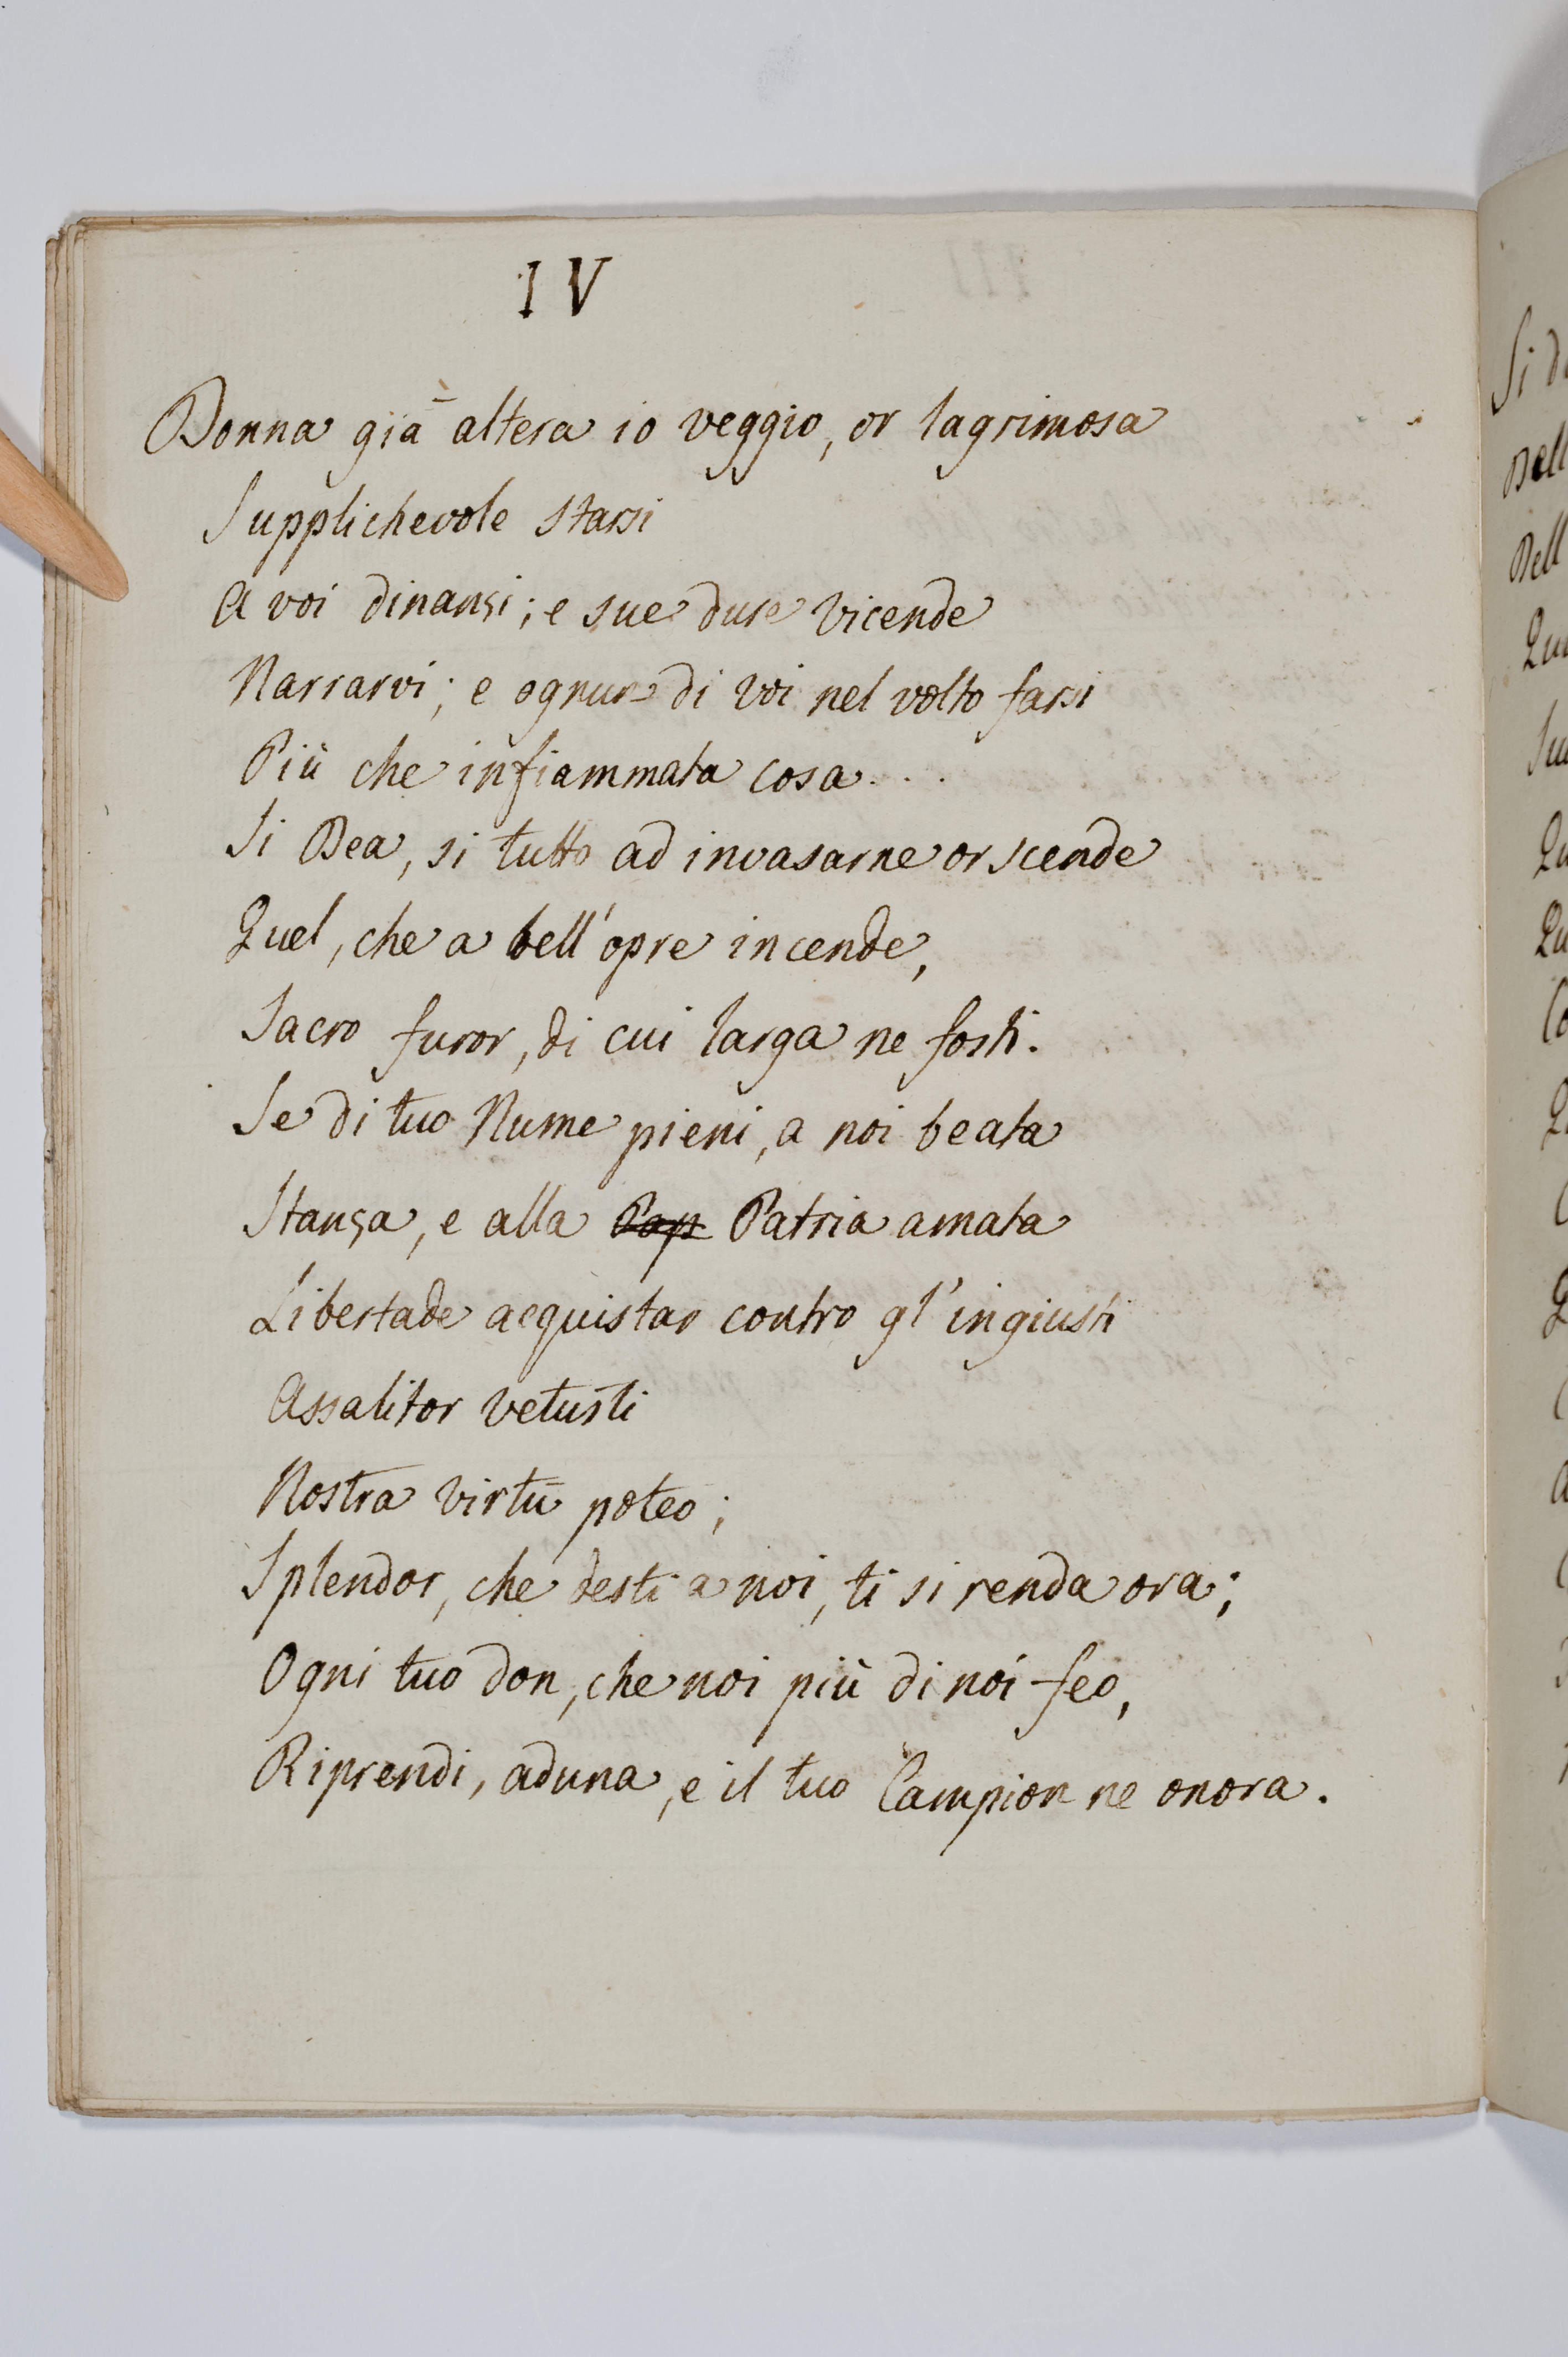 IV
Donna già altera io veggio, or lagrimosa
Supplichevole starsi
A voi dinanzi; e sue dure vicende
Narrarvi; e ognun di voi nel volto farsi
Più che infiammata cosa....
Si Dea, si tutto ad invasarne or scende
Quel, che a bell'opre incende,
Sacro furor, di cui larga ne fosti.
Se di tuo Nume pieni, a noi beata
Stanza, e alla Pap Patria amata
Libertade acquistar contro gl'ingiusti
Assalitor vetusti
Nostra virtù poteo;
Splendor, che desti a noi, ti si renda ora;
Ogni tuo don, che noi più di noi feo,
Riprendi, aduna, e il tuo Campion ne onora.